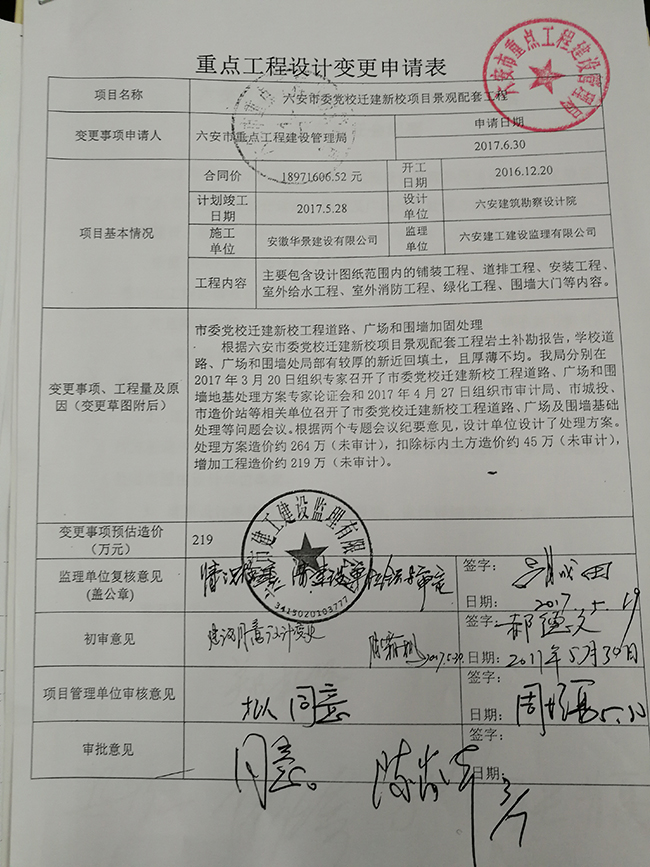 重点工程设计变更申请表
六安市重点工程建设管理局
项目名称
六安市委党校迁建新校项目景观配套工程
变更事项申请人
六安市重点工程建设管理局
申请日期
2017.6.30
项目基本情况
合同价
18971606.52 元
开工
日期
2016.12.20
计划竣工
日期
2017.5.28
设计
单位
六安建筑勘察设计院
施工
单位
安徽华景建设有限公司
监理
单位
六安建工建设监理有限公司
工程内容
主要包含设计图纸范围内的铺装工程、道排工程、安装工程、
室外给水工程、室外消防工程、绿化工程、围墙大门等内容。
变更事项、工程量及原
因（变更草图附后）
市委党校迁建新校工程道路、广场和围墙加固处理
根据六安市委党校迁建新校项目景观配套工程岩土补勘报告，学校道
路、广场和围墙处局部有较厚的新近回填土，且厚薄不均。我局分别在
2017 年 3 月 20 日组织专家召开了市委党校迁建新校工程道路、广场和围
墙地基处理方案专家论证会和 2017 年 4 月 27 日组织市审计局、市城投、
市造价站等相关单位召开了市委党校迁建新校工程道路、广场及围墙基础
处理等问题会议。根据两个专题会议纪要意见，设计单位设计了处理方案。
处理方案造价约 264 万（未审计），扣除标内土方造价约 45 万（未审计），
增加工程造价约 219 万（未审计）。
变更事项预估造价
（万元）
219
市建工建设监理有限
3415020103777
监理单位复核意见
（盖公章）
签字：
日期：
2017.5.29
初审意见
建议同意设计变更
2017.5.29
签字：
日期：
2017年5月30日
项目管理单位审核意见
拟同意
签字：
日期：
5.30
审批意见
同意。
签字：
日期：